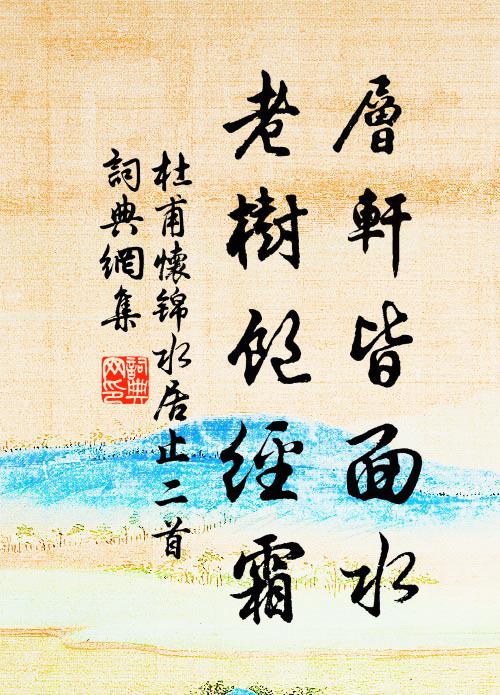 層軒皆面水
老樹飽經霜
杜甫懷錦水居止二首
詞典網集
詞典網印